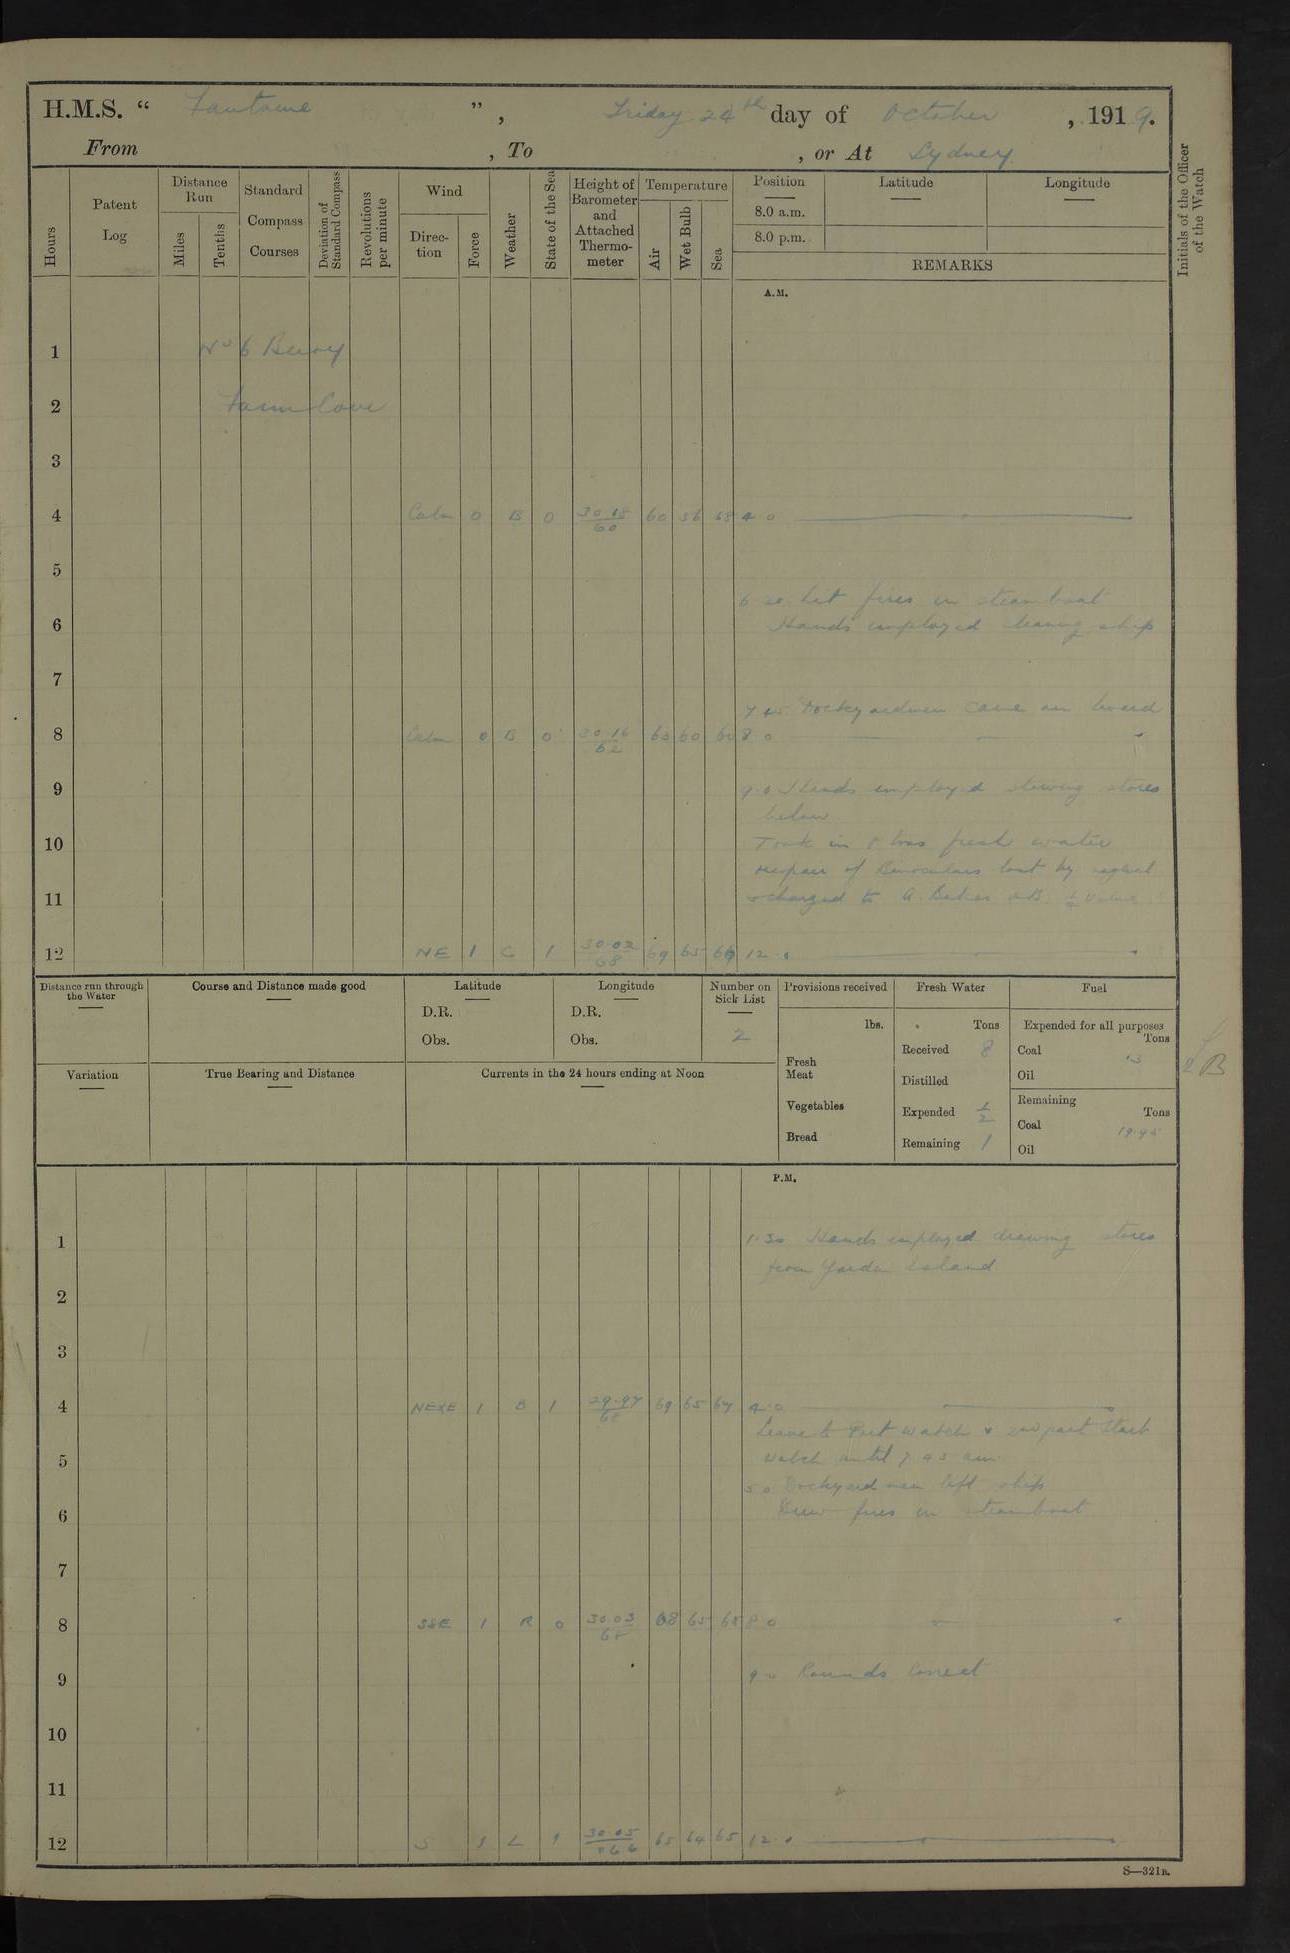 H.M.S. “ Fantome ” , Friday 24th day of October , 1919.
From , To , or At Sydney
Hours
Patent Log
Distance Run
Miles
Tenths
Standard Compass Courses
Deviation of Standard Compass
Revolutions per minute
Wind
Direc- tion
Force
Weather
State of the Sea
Height of Barometer and Attached Thermo- meter
Temperature
Air
Wet Bulb
Sea
Position
8.0 a.m.
8.0 p.m.
Latitude
Longitude
REMARKS
Initials of the Officer of the Watch
A.M.
1 No 6 Buoy
2 Farm Cove
3
4 Calm 0 B 0 30.18 60 60 56 4 0
5
6 Lit fires in steamboat
Hands employed cleaning ship
7
7 45 Dockyardmen came on board
8 Calm 0 B 0 30.16 62 60 8 0
9 9.0 Hands employed stowing stores
below
10 Took in 8 tons fresh water
Repair of Binoculars lost by neglect
11 & charged to A. AB ½ value
12 NE 1 C 1 30.02 68 69 65 66 12 0
Distance run through the Water
Course and Distance made good
Latitude
D.R.
Obs.
Longitude
D.R.
Obs.
Number on Sick List
2
Provisions received
lbs.
Fresh Meat
Vegetables
Bread
Fresh Water
Tons
Received 8
Distilled
Expended ½
Remaining 1
Fuel
Expended for all purposes
Tons
Coal
Oil
Remaining
Tons
Coal 19.95
Oil
Variation
True Bearing and Distance
Currents in the 24 hours ending at Noon
P.M.
1 1.30 Hands employed drawing stores
from Garden Island
2
3
4 NExE 1 B 1 29.97 69 65 67 4 0
Leave to Port watch & 2nd part Starb
5 watch until 7 45 am
5 0 Dockyard men left ship
6 Drew fires in steamboat
7
8 SSE 1 R 0 30.03 68 65 65 8 0
9 9 0 Rounds Correct
10
11
12 S 1 30.05 66 65 64 65 12 0
S—321B.